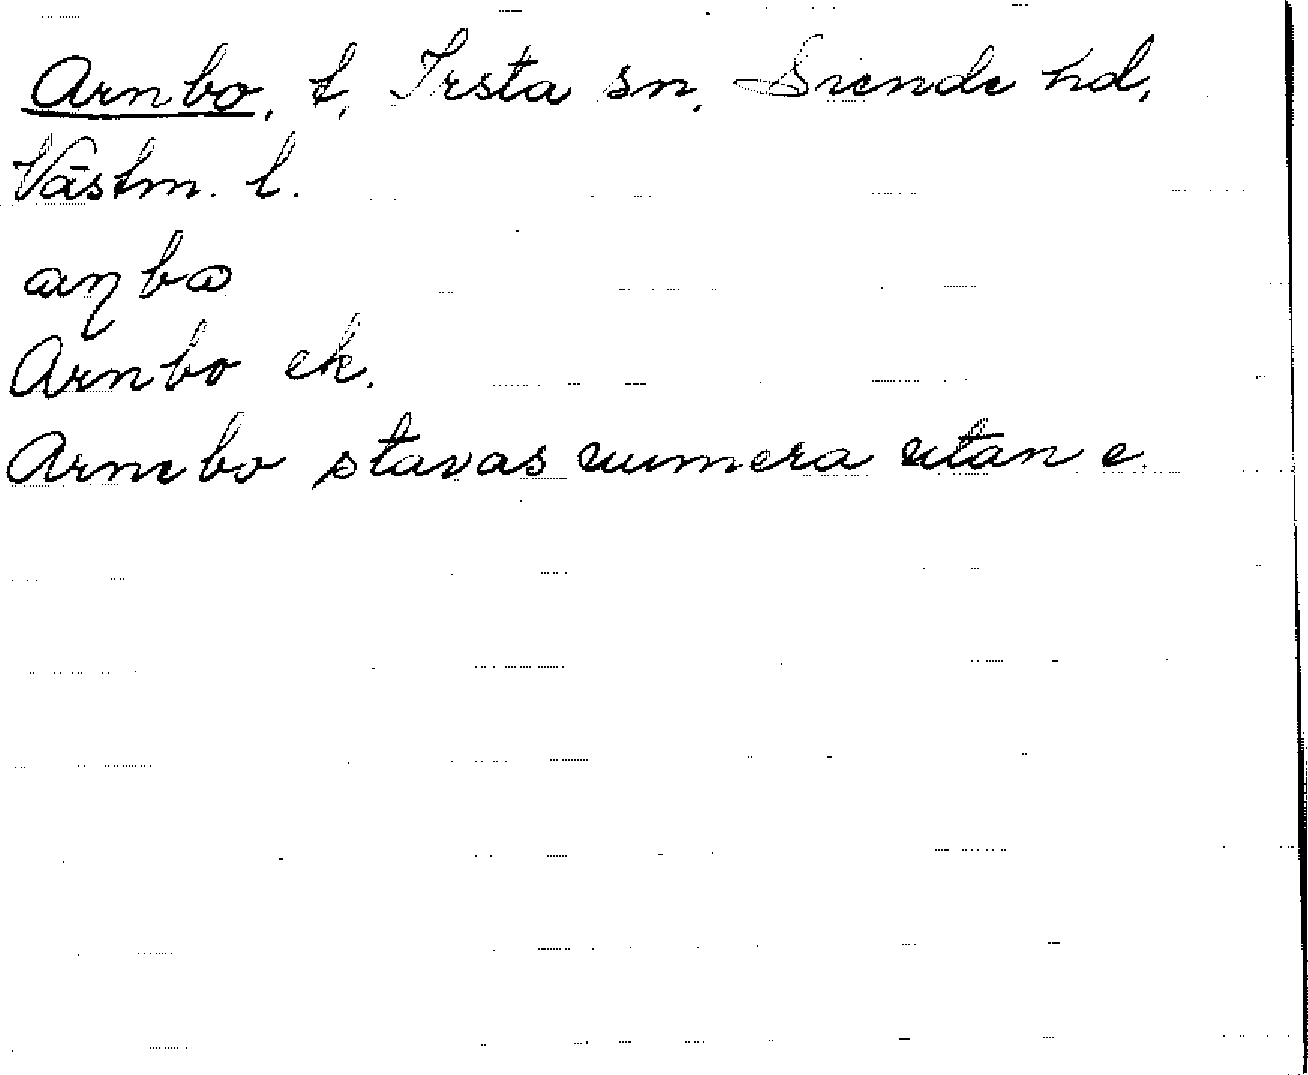 Arnbo, t, Irsta sn, Siende hd,
Västm. l.
aꞃba
Arnbo ek.
Arnebo stavas numera utan e.